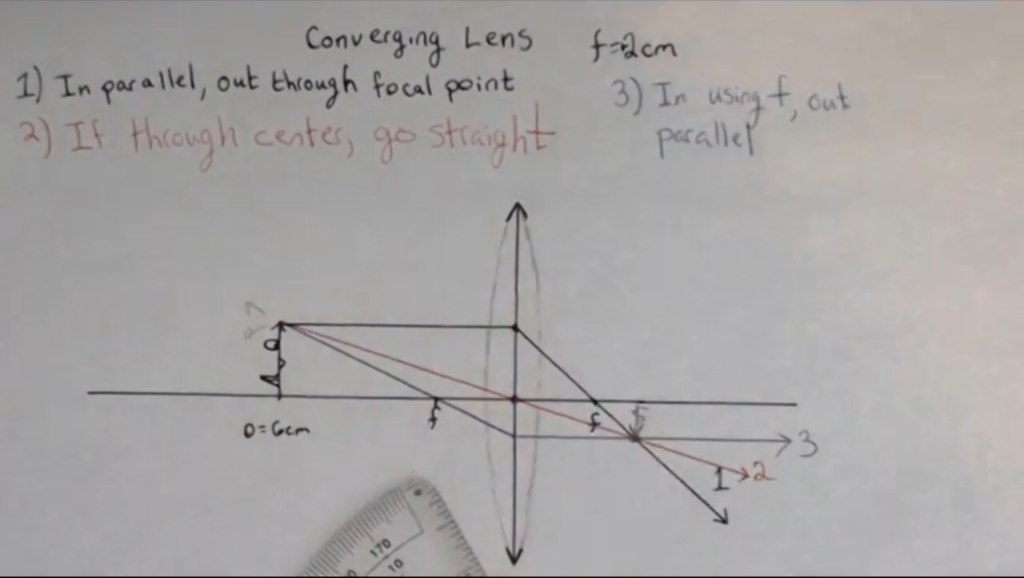 Converging Lens f=2cm
1) In parallel, out through focal point
2) If through center, go straight
3) In using f, out
parallel
f
f
O=6cm
3
1
2
170
10